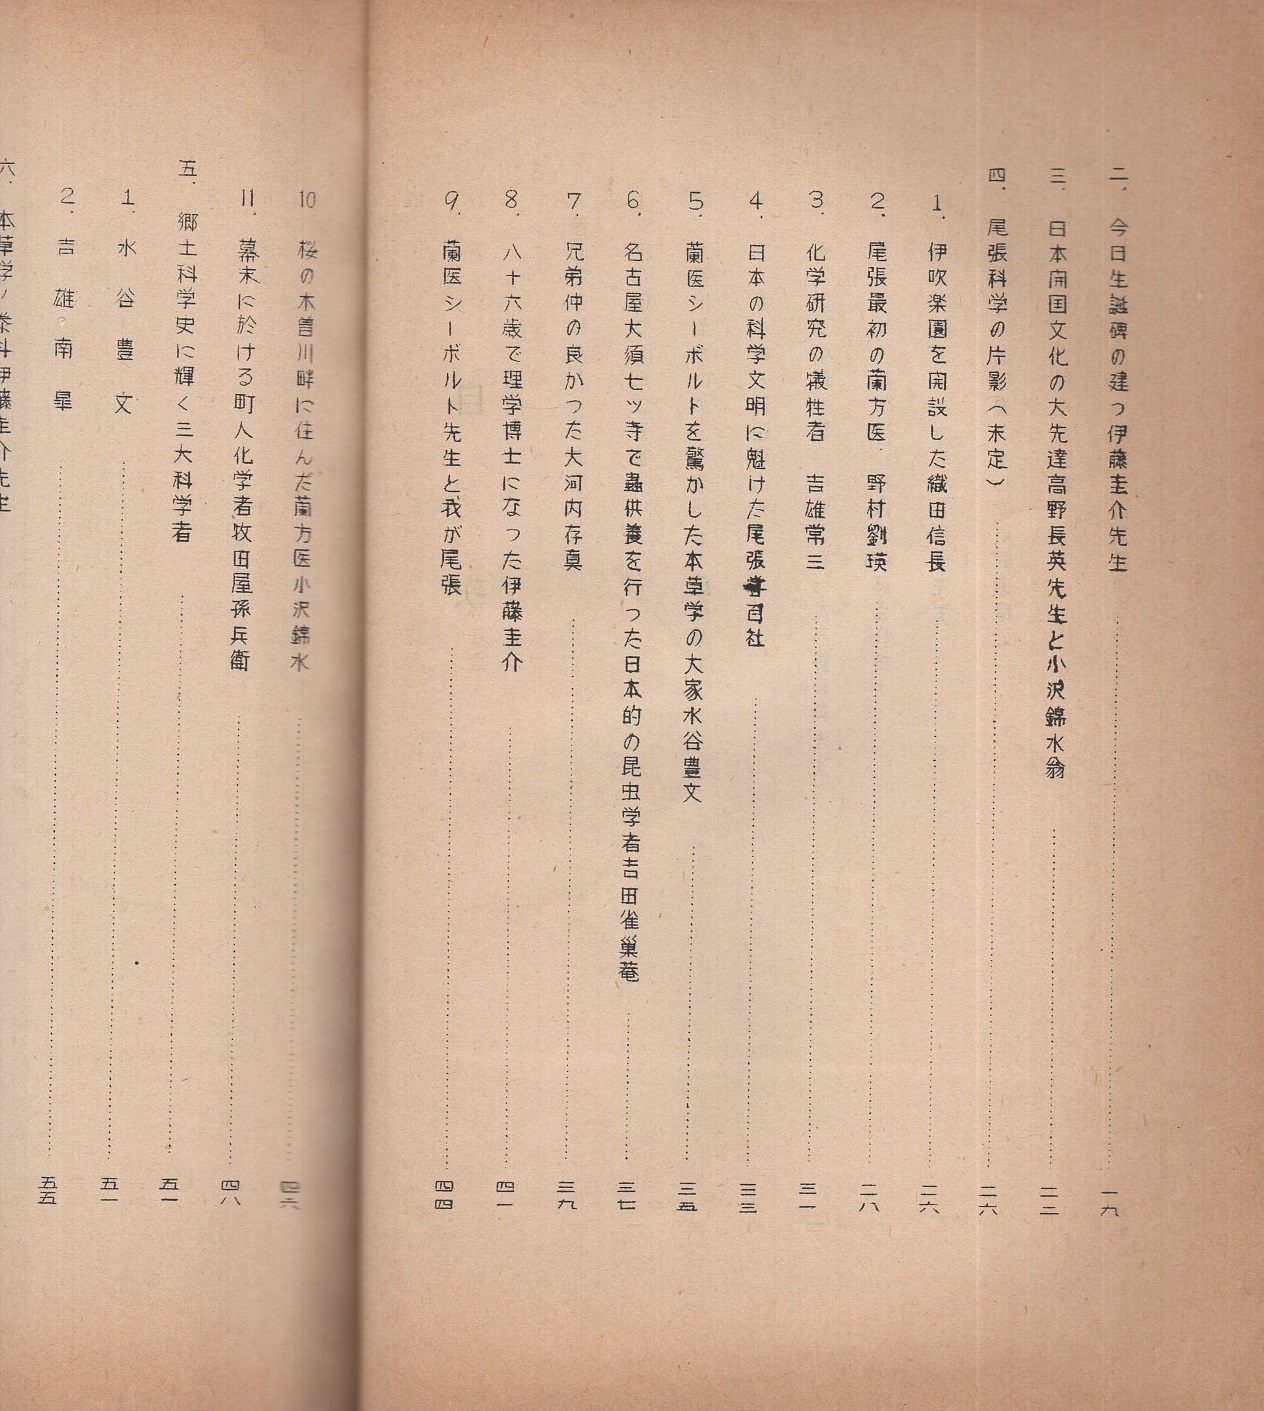 二、今日生誕碑の建つ伊藤圭介先生 一九
三、日本開国文化の大先達高野長英先生と小沢錦水翁 二二
四、尾張科学の片影（未定） 二六
1. 伊吹楽園を開設した織田信長 二六
2. 尾張最初の蘭方医 野村劉瑛 二八
3. 化学研究の犠牲者 吉雄常三 三一
4. 日本の科学文明に魁けた尾張嘗百社 三三
5. 蘭医シーボルトを驚かした本草学の大家水谷豊文 三五
6. 名古屋大須七ッ寺で蟲供養を行った日本的の昆虫学者吉田雀巣菴 三七
7. 兄弟仲の良かった大河内存真 三九
8. 八十六歳で理学博士になった伊藤圭介 四一
9. 蘭医シーボルト先生と我が尾張 四四
10 桜の木曽川畔に住んだ蘭方医小沢錦水 四六
11. 幕末に於ける町人化学者牧田屋孫兵衛 四八
五、郷土科学史に輝く三大科学者 五一
1. 水谷豊文 五一
2. 吉雄南皐 五五
六、本草学ノ泰斗伊藤圭介先生